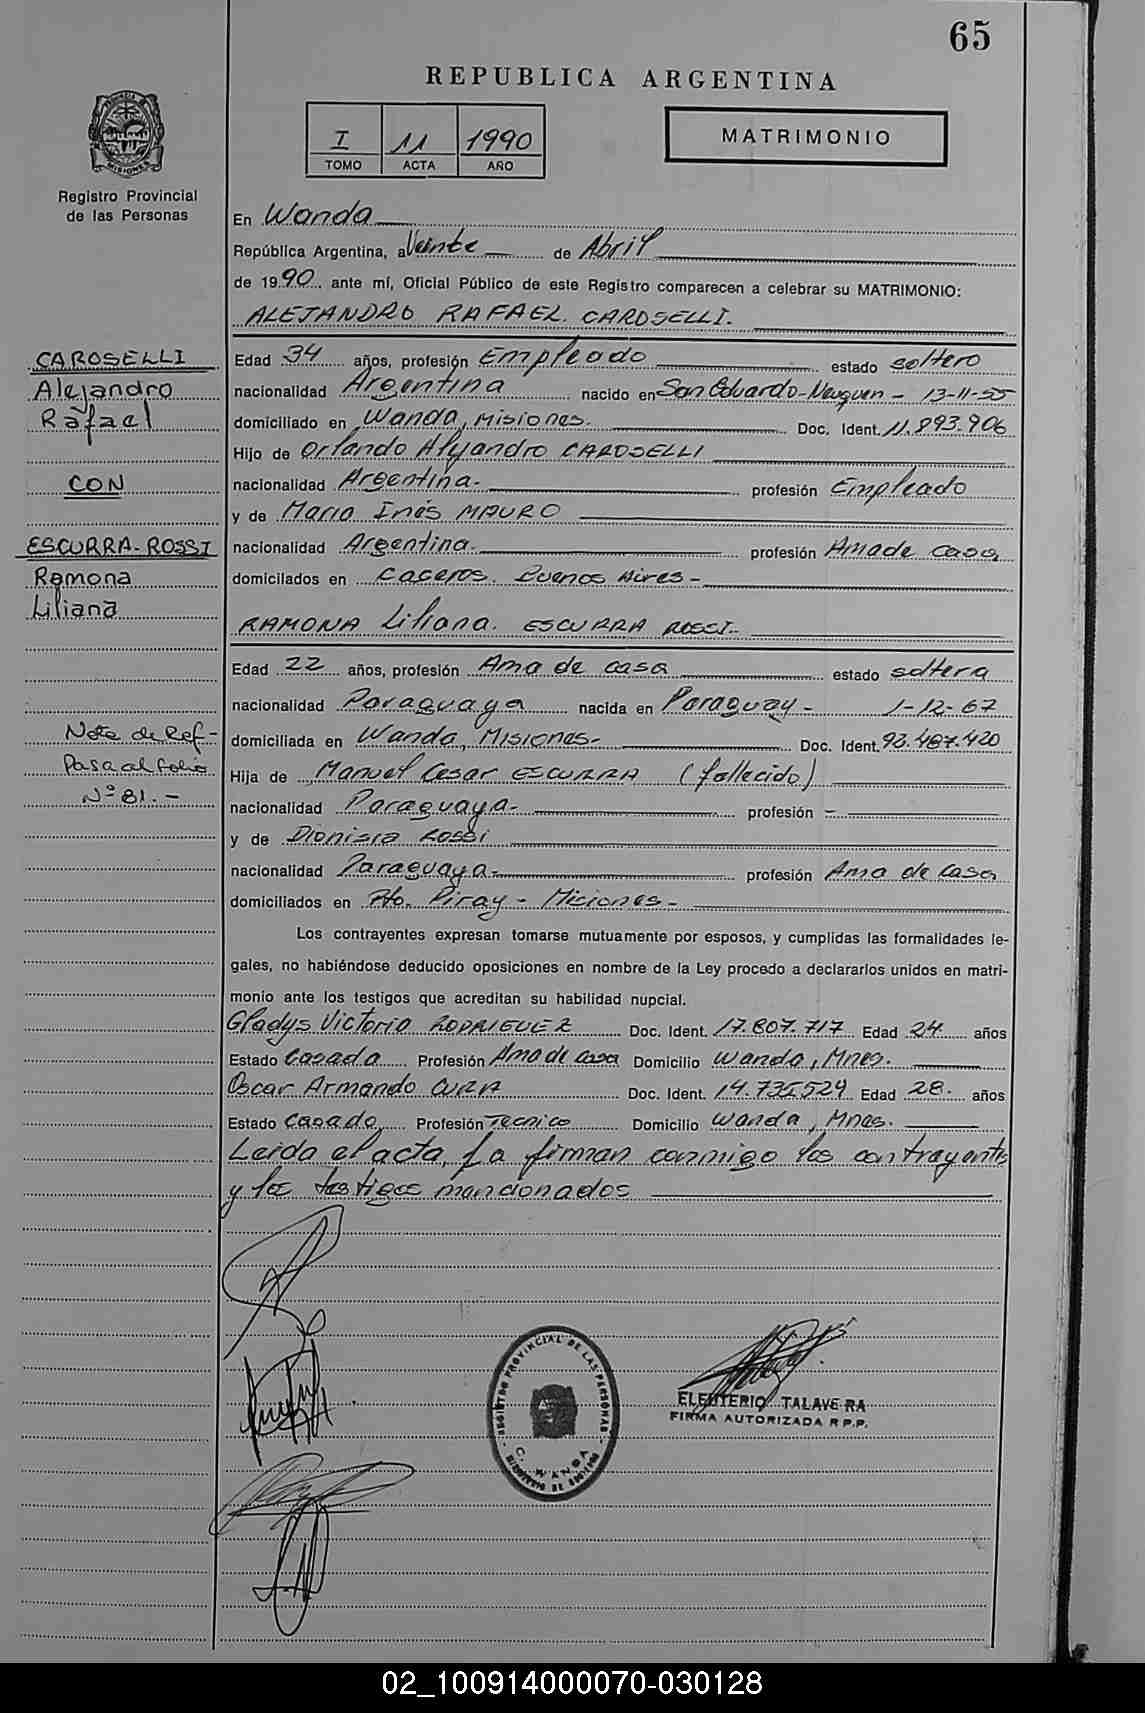 65
REPUBLICA ARGENTINA
I 11 1990
TOMO ACTA AÑO
MATRIMONIO
Registro Provincial
de las Personas
En Wanda
República Argentina, a Veinte de Abril
de 1990, ante mí, Oficial Público de este Registro comparecen a celebrar su MATRIMONIO:
ALEJANDRO RAFAEL CAROSELLI.
CAROSELLI
Alejandro
Rafael
CON
ESCURRA-ROSSI
Ramona
Liliana
Nota de Ref-
Pasa al folio
Nº 81.-
Edad 34 años, profesión Empleado estado soltero
nacionalidad Argentina nacido en San Eduardo-Neuquen - 13-11-55
domiciliado en Wanda, Misiones. Doc. Ident. 11.893.906
Hijo de Orlando Alejandro CAROSELLI
nacionalidad Argentina.- profesión Empleado
y de Maria Inés MAURO
nacionalidad Argentina. profesión Ama de casa
domicilados en Caseros. Buenos Aires-
RAMONA Liliana. ESCURRA ROSSI.-
Edad 22 años, profesión Ama de casa estado soltera
nacionalidad Paraguaya nacida en Paraguay - 1-12-67
domiciliada en Wanda, Misiones- Doc. Ident. 93.487.420
Hija de Manuel Cesar ESCURRA (fallecido)
nacionalidad Paraguaya- profesión -
y de Dionisia Rossi
nacionalidad Paraguaya- profesión Ama de casa
domiciliados en Pto. Piray - Misiones-
Los contrayentes expresan tomarse mutuamente por esposos, y cumplidas las formalidades le-
gales, no habiéndose deducido oposiciones en nombre de la Ley procedo a declararlos unidos en matri-
monio ante los testigos que acreditan su habilidad nupcial.
Gladys Victoria RODRIGUEZ Doc. Ident. 17.807.717 Edad 24 años
Estado Casada Profesión Ama de casa Domicilio Wanda, Mnes.
Oscar Armando CURA Doc. Ident. 14.735.529 Edad 28. años
Estado Casado Profesión Tecnico Domicilio Wanda, Mnes.
Leida el acta, la firman conmigo los contrayentes
y los testigos mencionados
REGISTRO PROVINCIAL DE LAS PERSONAS
WANDA
ELEUTERIO TALAVERA
FIRMA AUTORIZADA R.P.P.
02_100914000070-030128